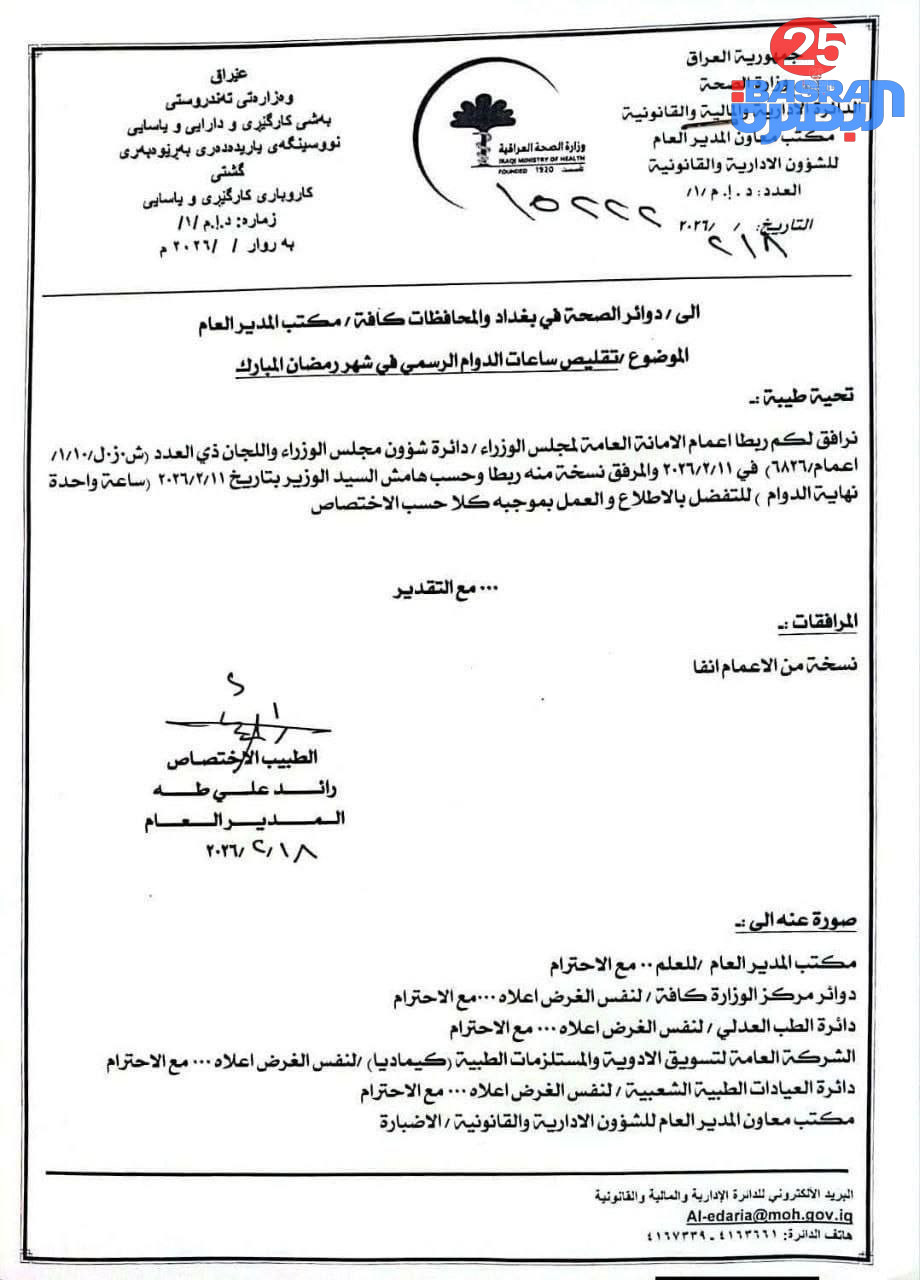 جمهورية العراق
وزارة الصحة
الدائرة الادارية والمالية والقانونية
مكتب معاون المدير العام
للشؤون الادارية والقانونية
العدد: د.إ.م/١/
١٥٢٢٢
التاريخ: / /٢٠٢٦
٢١٨
25
BASRAH
البصرة
وزارة الصحة العراقية
IRAQI MINISTRY OF HEALTH
FOUNDED 1920 تأسست
عێراق
وەزارەتی تەندروستی
بەشی کارگێڕی و دارایی و یاسایی
نووسینگەی یاریدەدەری بەڕێوەبەری
گشتی
کاروباری کارگێڕی و یاسایی
ژمارە: د.إ.م/١/
بە روار / /٢٠٢٦ م
الى/ دوائر الصحة في بغداد والمحافظات كافة/ مكتب المدير العام
الموضوع /تقليص ساعات الدوام الرسمي في شهر رمضان المبارك
تحية طيبة :ـ
نرافق لكم ربطا اعمام الامانة العامة لمجلس الوزراء/ دائرة شؤون مجلس الوزراء واللجان ذي العدد (ش.ز.ل/١/١٠/
اعمام/٦٨٢٦) في ٢٠٢٦/٢/١١ والمرفق نسخة منه ربطا وحسب هامش السيد الوزير بتاريخ ٢٠٢٦/٢/١١ (ساعة واحدة
نهاية الدوام ) للتفضل بالاطلاع و العمل بموجبه كلا حسب الاختصاص
... مع التقدير
المرافقات :ـ
نسخة من الاعمام انفا
الطبيب الاختصاص
رائــد علــي طــه
الـمـديـر الـعـام
٢٠٢٦/٢/١٨
صورة عنه الى :ـ
مكتب المدير العام /للعلم .. مع الاحترام
دوائر مركز الوزارة كافة/ لنفس الغرض اعلاه ...مع الاحترام
دائرة الطب العدلي/ لنفس الغرض اعلاه ... مع الاحترام
الشركة العامة لتسويق الادوية والمستلزمات الطبية (كيماديا) /لنفس الغرض اعلاه ... مع الاحترام
دائرة العيادات الطبية الشعبية / لنفس الغرض اعلاه ... مع الاحترام
مكتب معاون المدير العام للشؤون الادارية والقانونية / الاضبارة
البريد الالكتروني للدائرة الإدارية والمالية والقانونية
Al-edaria@moh.gov.iq
هاتف الدائرة: ٤١٦٣٦٦١ - ٤١٦٧٣٣٩